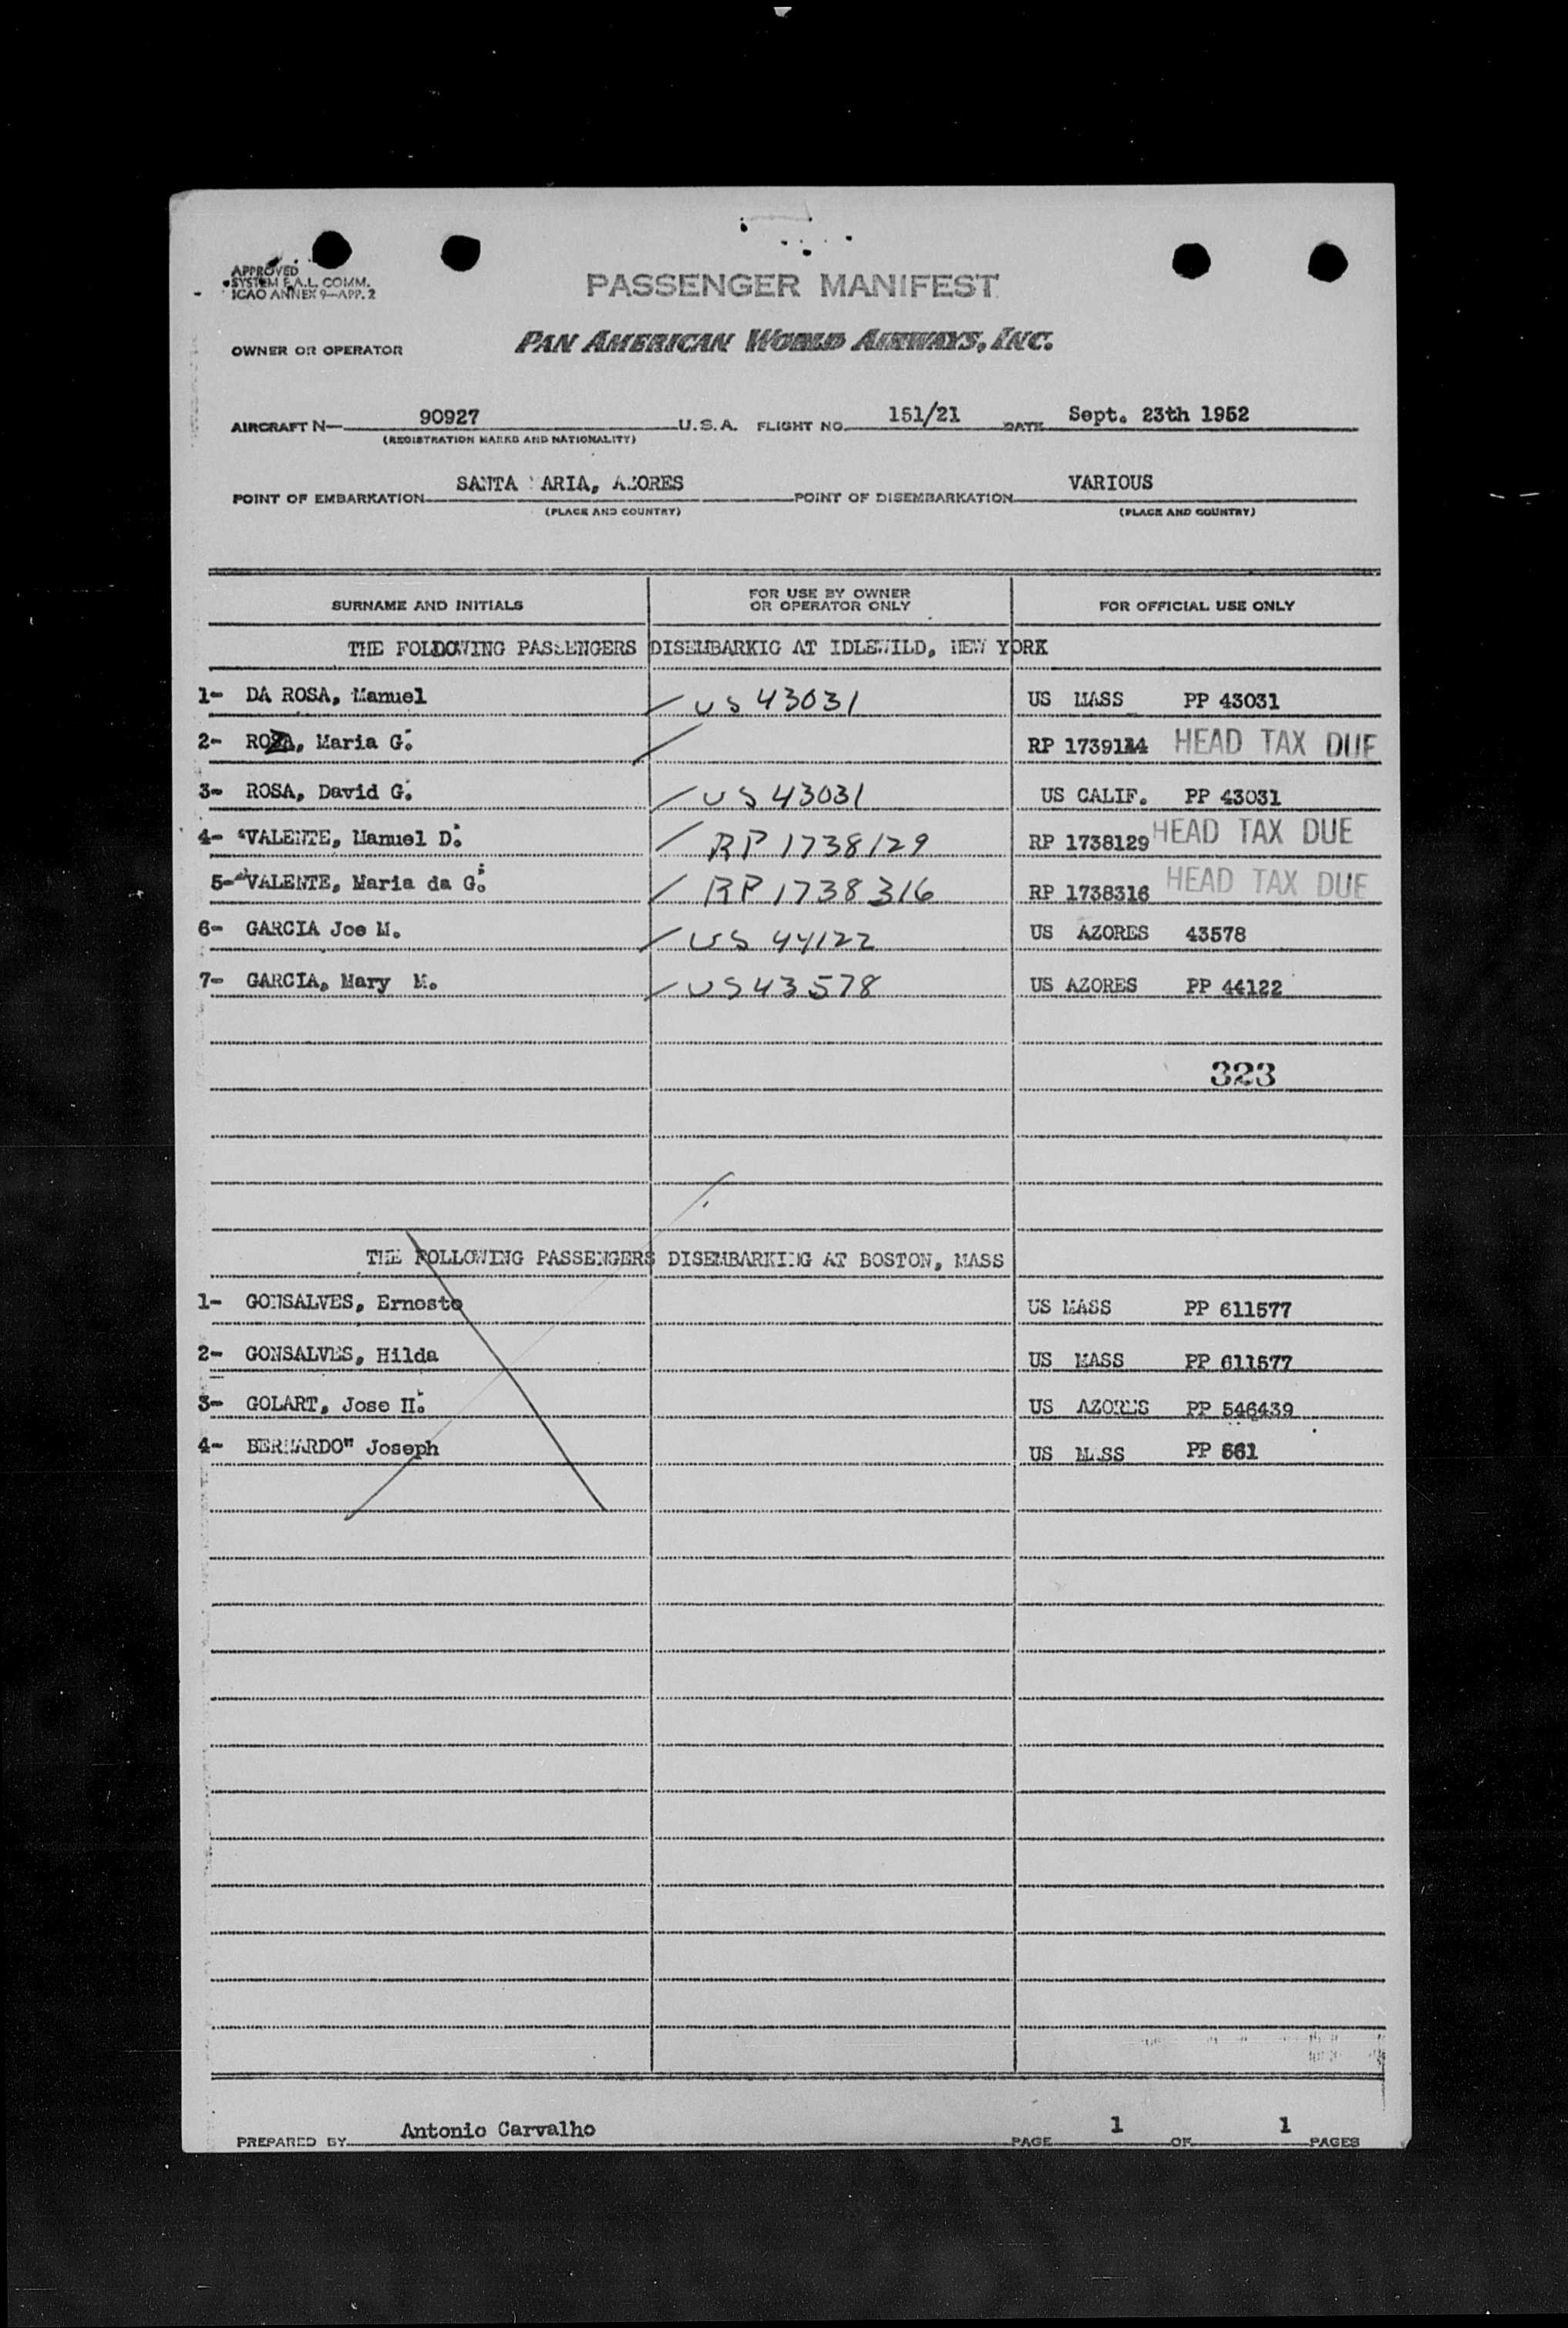 APPROVED
SYSTEM F.A.L. COMM.
ICAO ANNEX 9—APP. 2
PASSENGER MANIFEST
OWNER OR OPERATOR PAN AMERICAN WORLD AIRWAYS, INC.
AIRCRAFT N— 90927 U.S.A. FLIGHT NO. 151/21 DATE Sept. 23th 1952
(REGISTRATION MARKS AND NATIONALITY)
POINT OF EMBARKATION SANTA MARIA, AZORES POINT OF DISEMBARKATION VARIOUS
(PLACE AND COUNTRY) (PLACE AND COUNTRY)
SURNAME AND INITIALS FOR USE BY OWNER OR OPERATOR ONLY FOR OFFICIAL USE ONLY
THE FOLLOWING PASSENGERS DISEMBARKIG AT IDLEWILD, NEW YORK
1- DA ROSA, Manuel US 43031 US MASS PP 43031
2- ROSA, Maria G. RP HEAD TAX DUE
3- ROSA, David G. US 43031 US CALIF. PP 43031
4- VALENTE, Manuel D. RP 1738129 RP 1738129 HEAD TAX DUE
5- VALENTE, Maria da G. RP 1738316 RP 1738316 HEAD TAX DUE
6- GARCIA Joe M. US 44122 US AZORES 43578
7- GARCIA, Mary M. US 43578 US AZORES PP 44122
323
THE FOLLOWING PASSENGERS DISEMBARKING AT BOSTON, MASS
1- GONSALVES, Ernesto US MASS PP 611577
2- GONSALVES, Hilda US MASS PP 611577
3- GOLART, Jose US AZORES PP 546439
4- BERNARDO" Joseph US MASS PP 561
PREPARED BY Antonio Carvalho PAGE 1 OF 1 PAGES